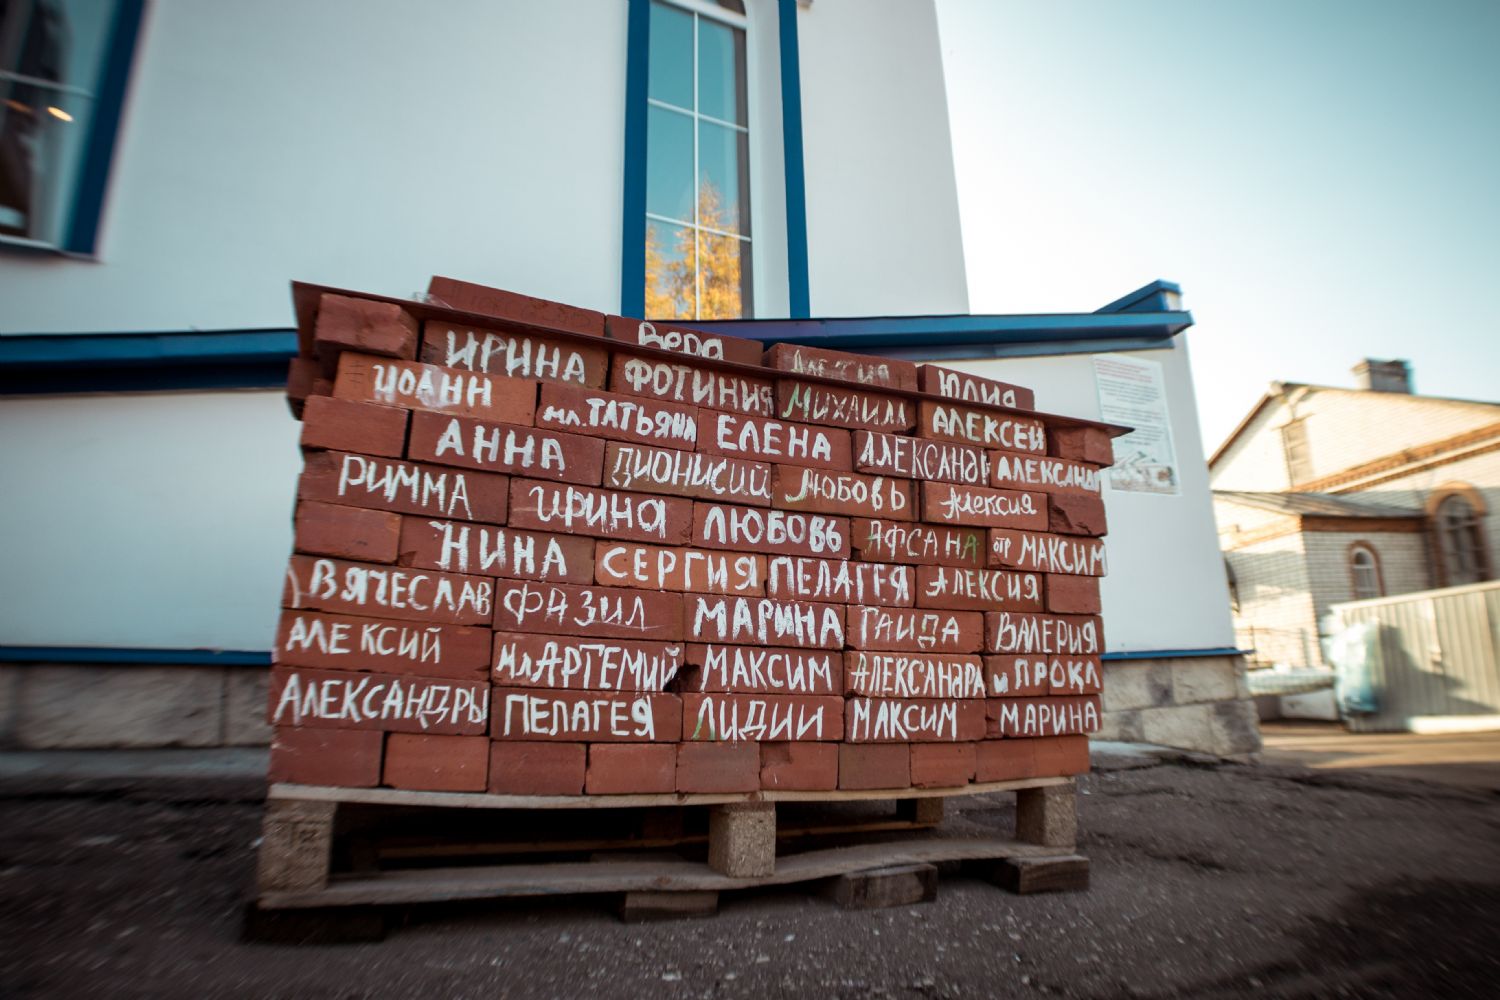 Вера
ИРИНА ФОТИНИЯ АЛЕКСИЯ ЮЛИЯ
ИОАНН мл.ТАТЬЯНА МИХАИЛ АЛЕКСЕЙ
АННА ЕЛЕНА АЛЕКСАНДР АЛЕКСАНДР
РИММА ДИОНИСИЙ ЛЮБОВЬ Алексия
ИРИНА ЛЮБОВЬ АФСАНА отр МАКСИМ
НИНА СЕРГИЯ ПЕЛАГЕЯ АЛЕКСИЯ
ВЯЧЕСЛАВ ФАЗИЛ МАРИНА ГАИДА ВАЛЕРИЯ
АЛЕКСИЙ мл АРТЕМИЙ МАКСИМ АЛЕКСАНДРА и ПРОКЛ
АЛЕКСАНДРЫ ПЕЛАГЕЯ ЛИДИИ МАКСИМ МАРИНА